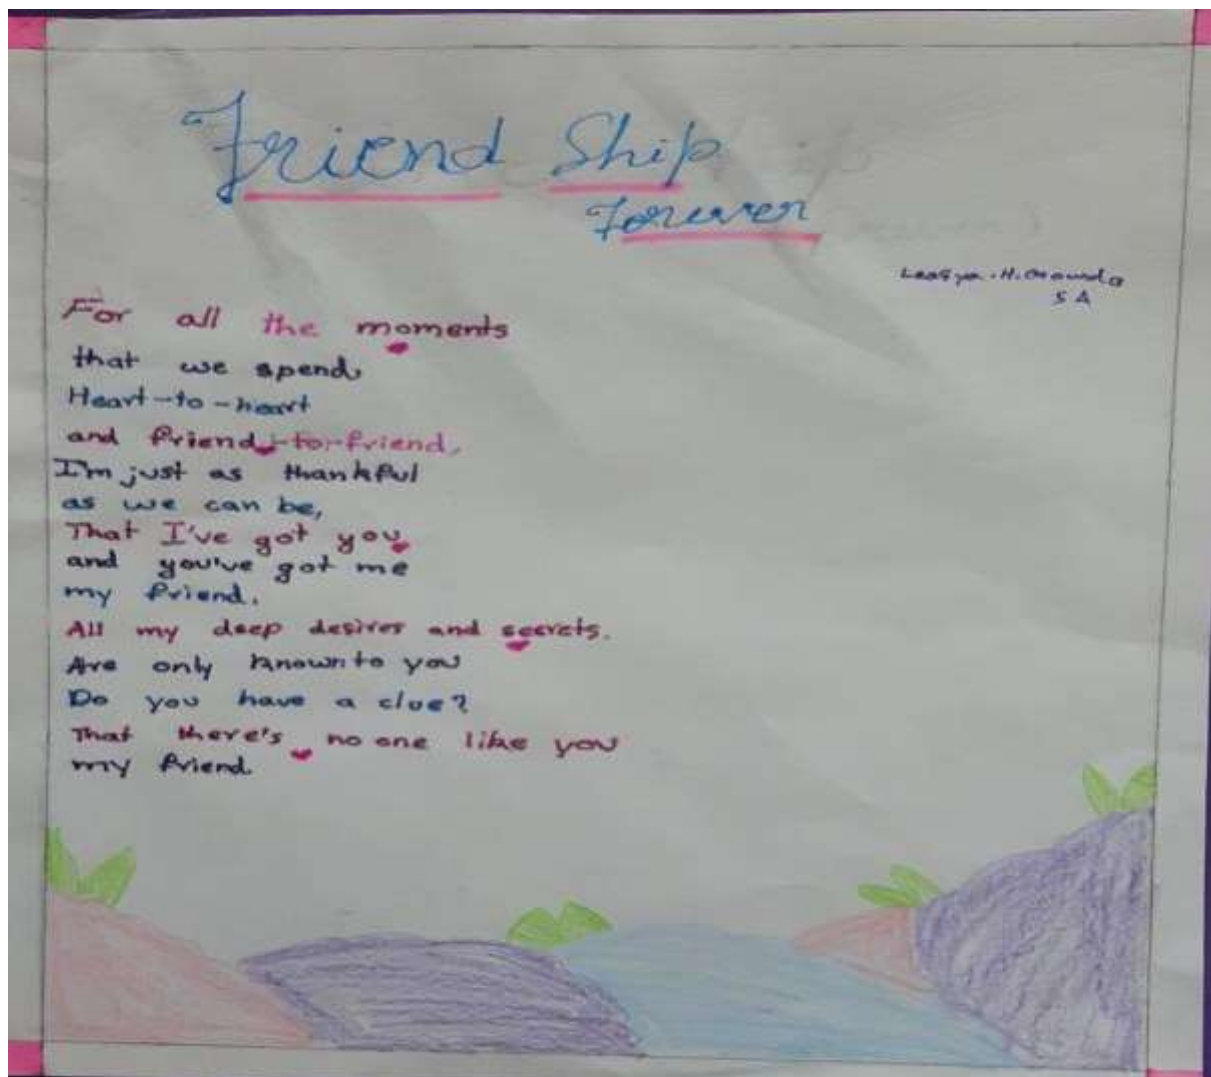 Friend Ship
Forever
H. Gowda
5 A
For all the moments
that we spend,
Heart-to-heart
and friend-to-friend,
I'm just as thankful
as we can be,
That I've got you
and you've got me
my friend.
All my deep desires and secrets.
Are only known to you
Do you have a clue?
That there's no one like you
my friend.